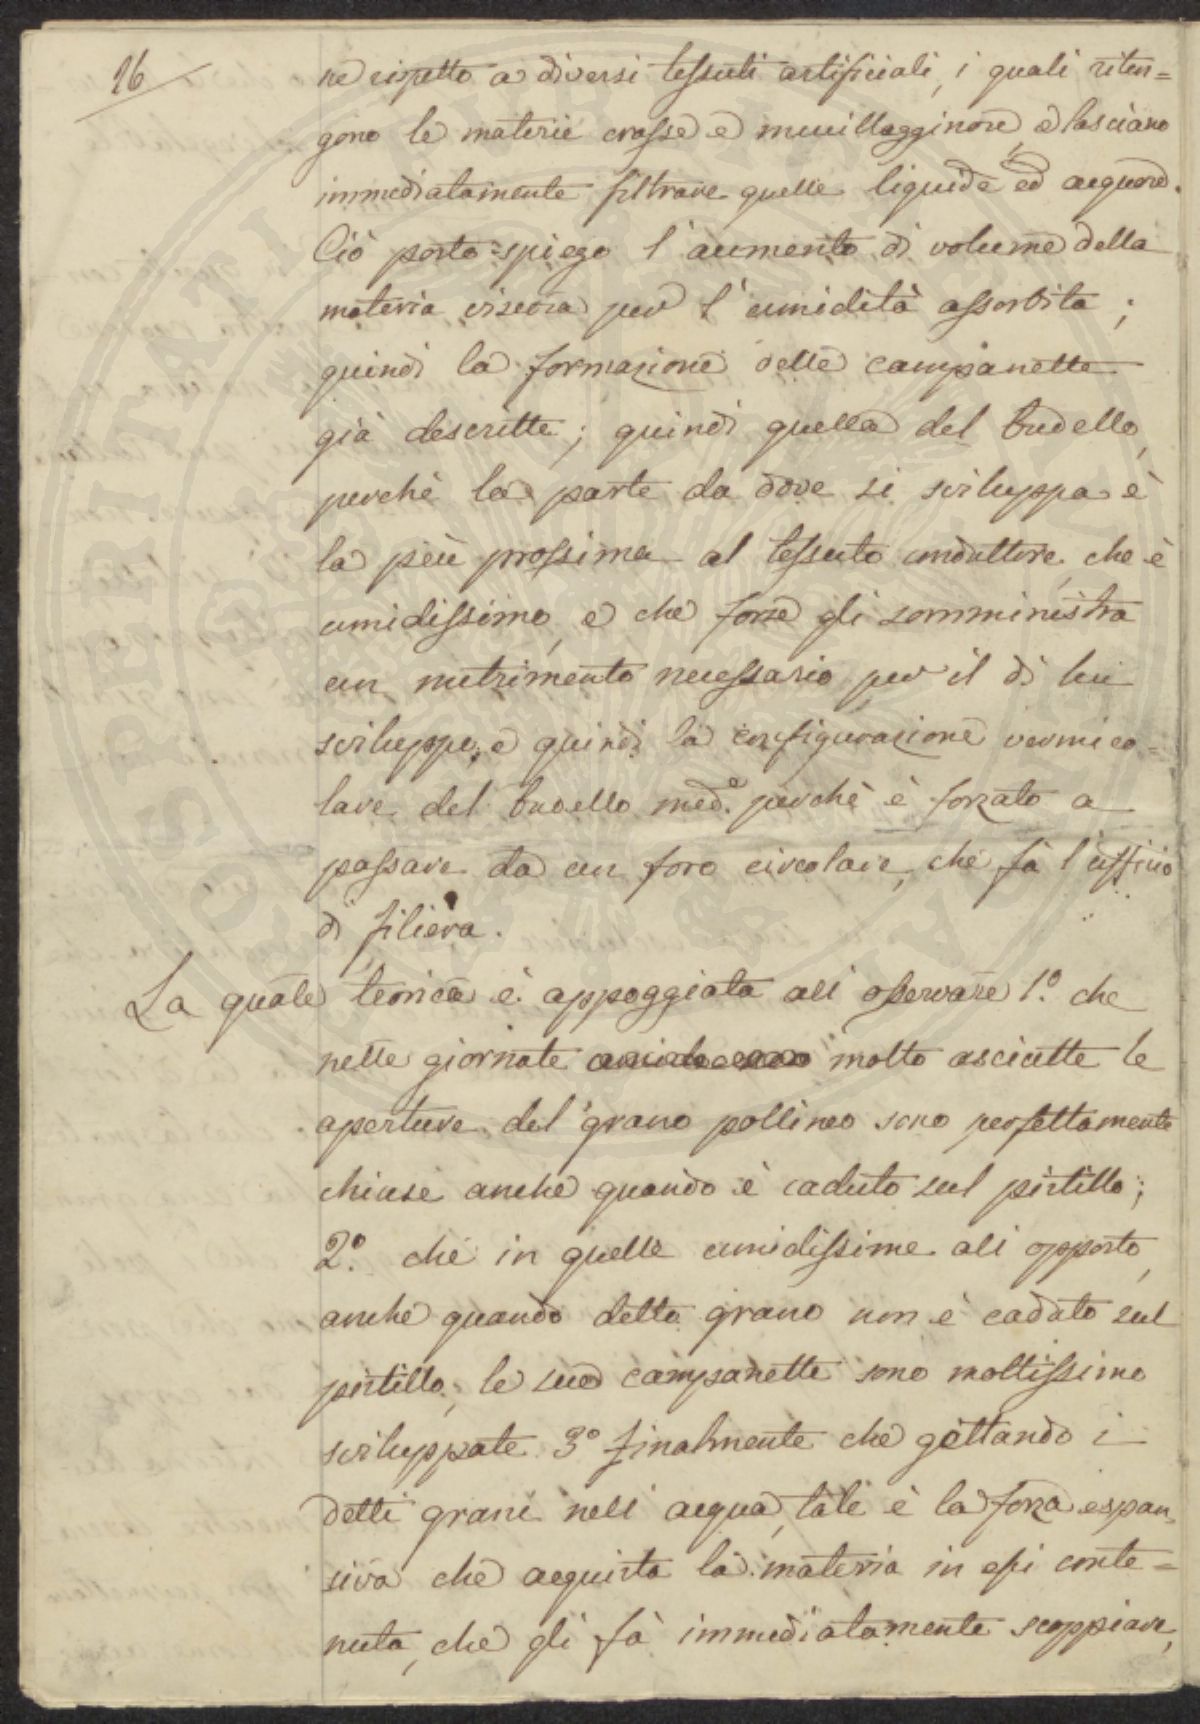 16
ne rispetto a diversi tessuti artificiali, i quali riten=
gono le materie crasse e mucillagginose, e lasciano
immediatamente filtrare quelle liquide ed acquose.
Ciò posto spiego l'aumento di volume della
materia viscosa per l'umidità assorbita;
quindi la formazione delle campanette
già descritte; quindi quella del budello,
perchè la parte da dove si sviluppa è
la più prossima al tessuto conduttore, che è
umidissimo, e che forse gli somministra
un nutrimento necessario per il di lui
sviluppo; e quindi la configurazione vermico=
lare del budello med.e perchè è forzato a
passare da un foro circolare, che fà l'uffizio
di filiera.
La quale teorica è appoggiata all'osservare 1.o che
nelle giornate molto asciutte le
aperture del grano pollineo sono perfettamente
chiuse anche quando è caduto sul pistillo;
2.o che in quelle umidissime all'opposto,
anche quando detto grano non è caduto sul
pistillo, le sue campanette sono moltissimo
sviluppate 3.o finalmente che gettando i
detti grani nell'acqua, tale è la forza espan=
siva che acquista la materia in essi conte=
nuta, che gli fà immediatamente scoppiare,